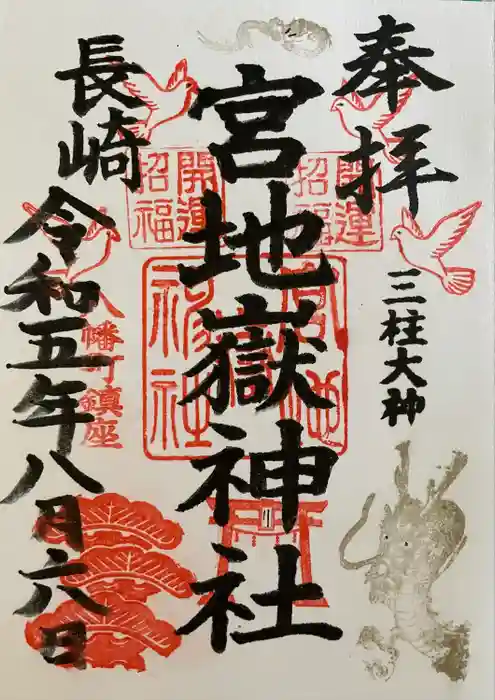 奉拝
三柱大神
宮地嶽神社
長崎
令和五年八月六日
開運
招福
開運
招福
八幡町鎮座